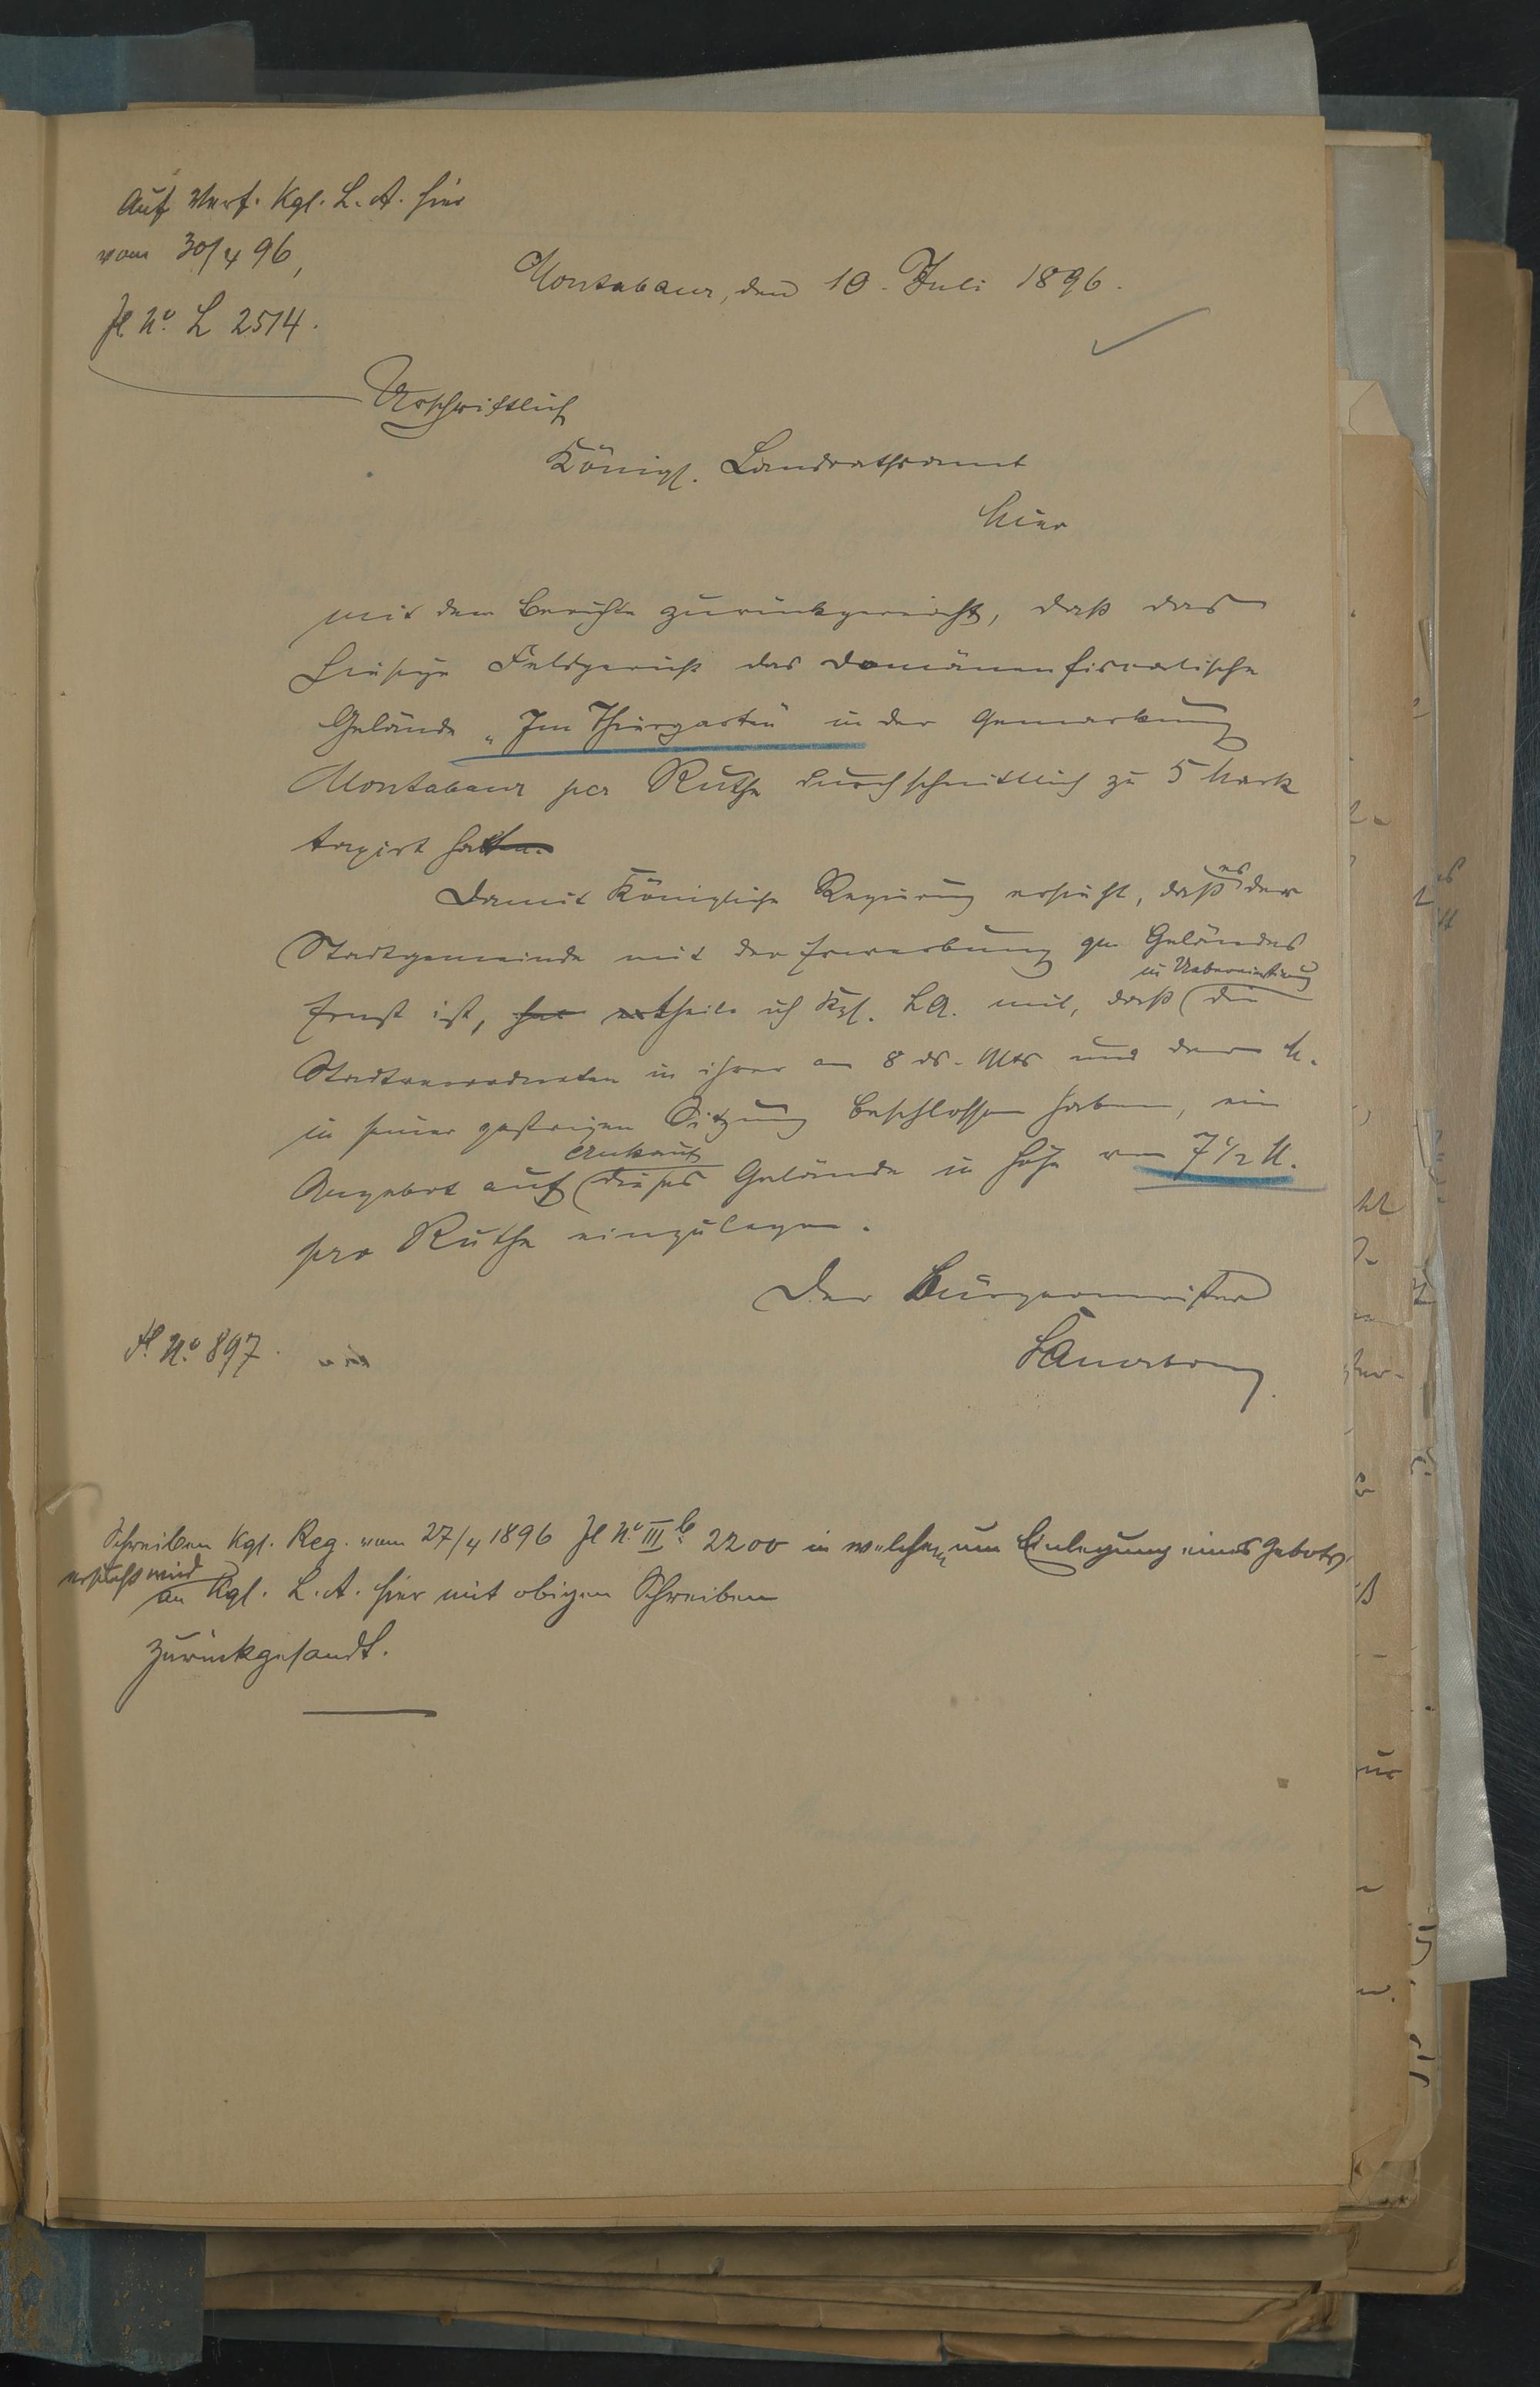 Auf Verf. Kgl. L. A. hier
vom 30/4 96,
Jl No. L 2514.
Montabaur, den 10. Juli 1896.
Urschriftlich
Königl. Landrathsamt
hier
mit dem Berichte zurückgereicht, daß das
hiesige Feldgericht das domänenfiscalische
Gelände „Im Thiergarten" in der Gemarkung
Montabaur per Ruthe durchschnittlich zu 5 Mark
taxirt hat
Damit Königliche Regierung ersieht, daß es der
Stadtgemeinde mit der Erwerbung qu. Geländes
Ernst ist, theile ich Kgl. LA. mit, daß in Uebereinstimmung die
Stadtverordneten in ihrer am 8 ds. Mts und der M.
in seiner gestrigen Sitzung beschlossen haben, ein
Angebot auf Ankauf dieses Gelände in Höhe von 7 1/2 M.
pro Ruthe einzulegen.
Der Bürgermeister
Sauerborn
Jl. No. 897.
Schreiben Kgl. Reg. vom 27/4 1896 Jl No. III b. 2200 in welchem um Einlegung eines Gebots
ersucht wird
an Kgl. L. A. hier mit obigem Schreiben
zurückgesandt.